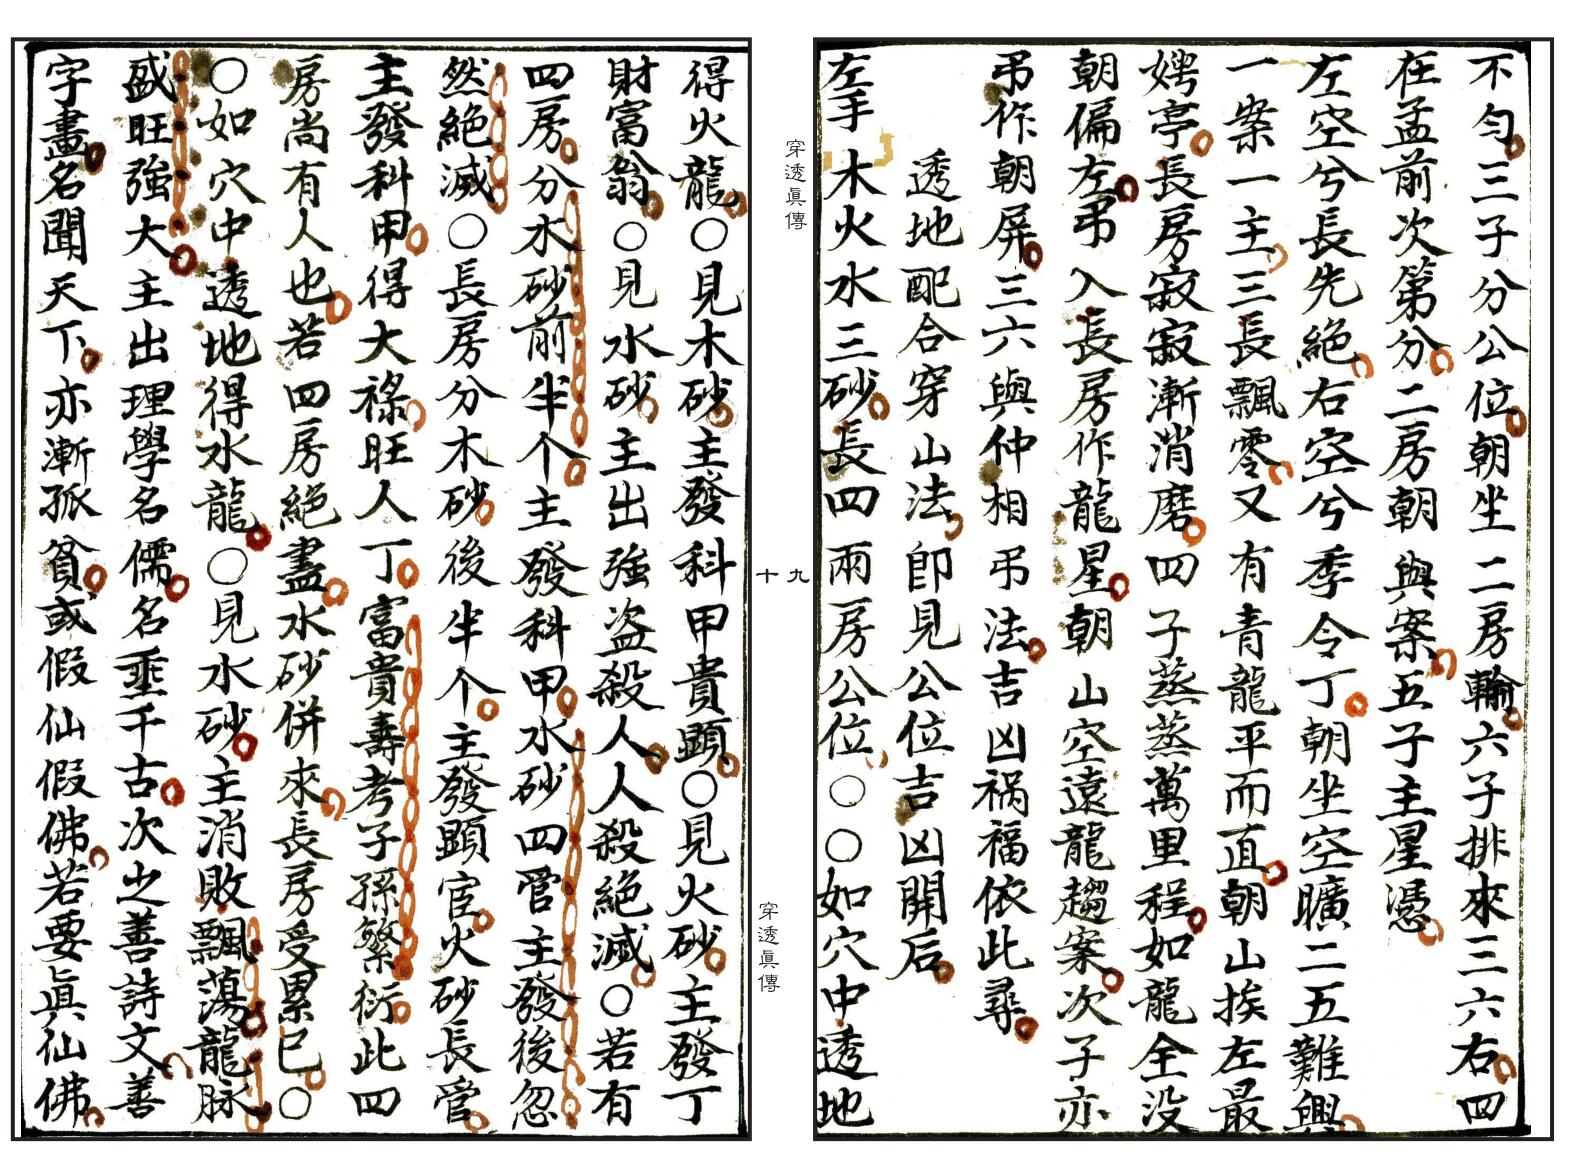 不勻三子分公位朝坐二房輪六子排來三六右四
在孟前次第分二房朝與案五子主星憑
左空兮長先絕右空兮季令丁朝坐空曠二五難興
一案一主三長飄零又有青龍平而直朝山挨左最
娉亭長房寂寂漸消磨四子蒸蒸萬里程如龍全没
朝偏左弔入長房作龍星朝山空遠龍趨案次子亦
弔作朝屏三六與仲相弔法吉凶禍福依此尋
透地配合穿山法即見公位吉凶開后
左手木火水三砂長四兩房公位○○如穴中透地
穿透眞傳
十九
穿透眞傳
得火龍○見木砂主發科甲貴顕○見火砂主發丁
財富翁○見水砂主出強盗殺人人殺絕滅○若有
四房分水砂前半个主發科甲水砂四管主發後忽
然絕滅○長房分木砂後半个主發顕宦火砂長管
主發科甲得大祿旺人丁富貴壽考子孫繁衍此四
房尚有人也若四房絕盡水砂併來長房受累已○
○如穴中透地得水龍○見水砂主消敗飄蕩龍脉
盛旺強大主出理學名儒名垂千古次之善詩文善
字畫名聞天下亦漸孤貧或假仙假佛若要眞仙佛